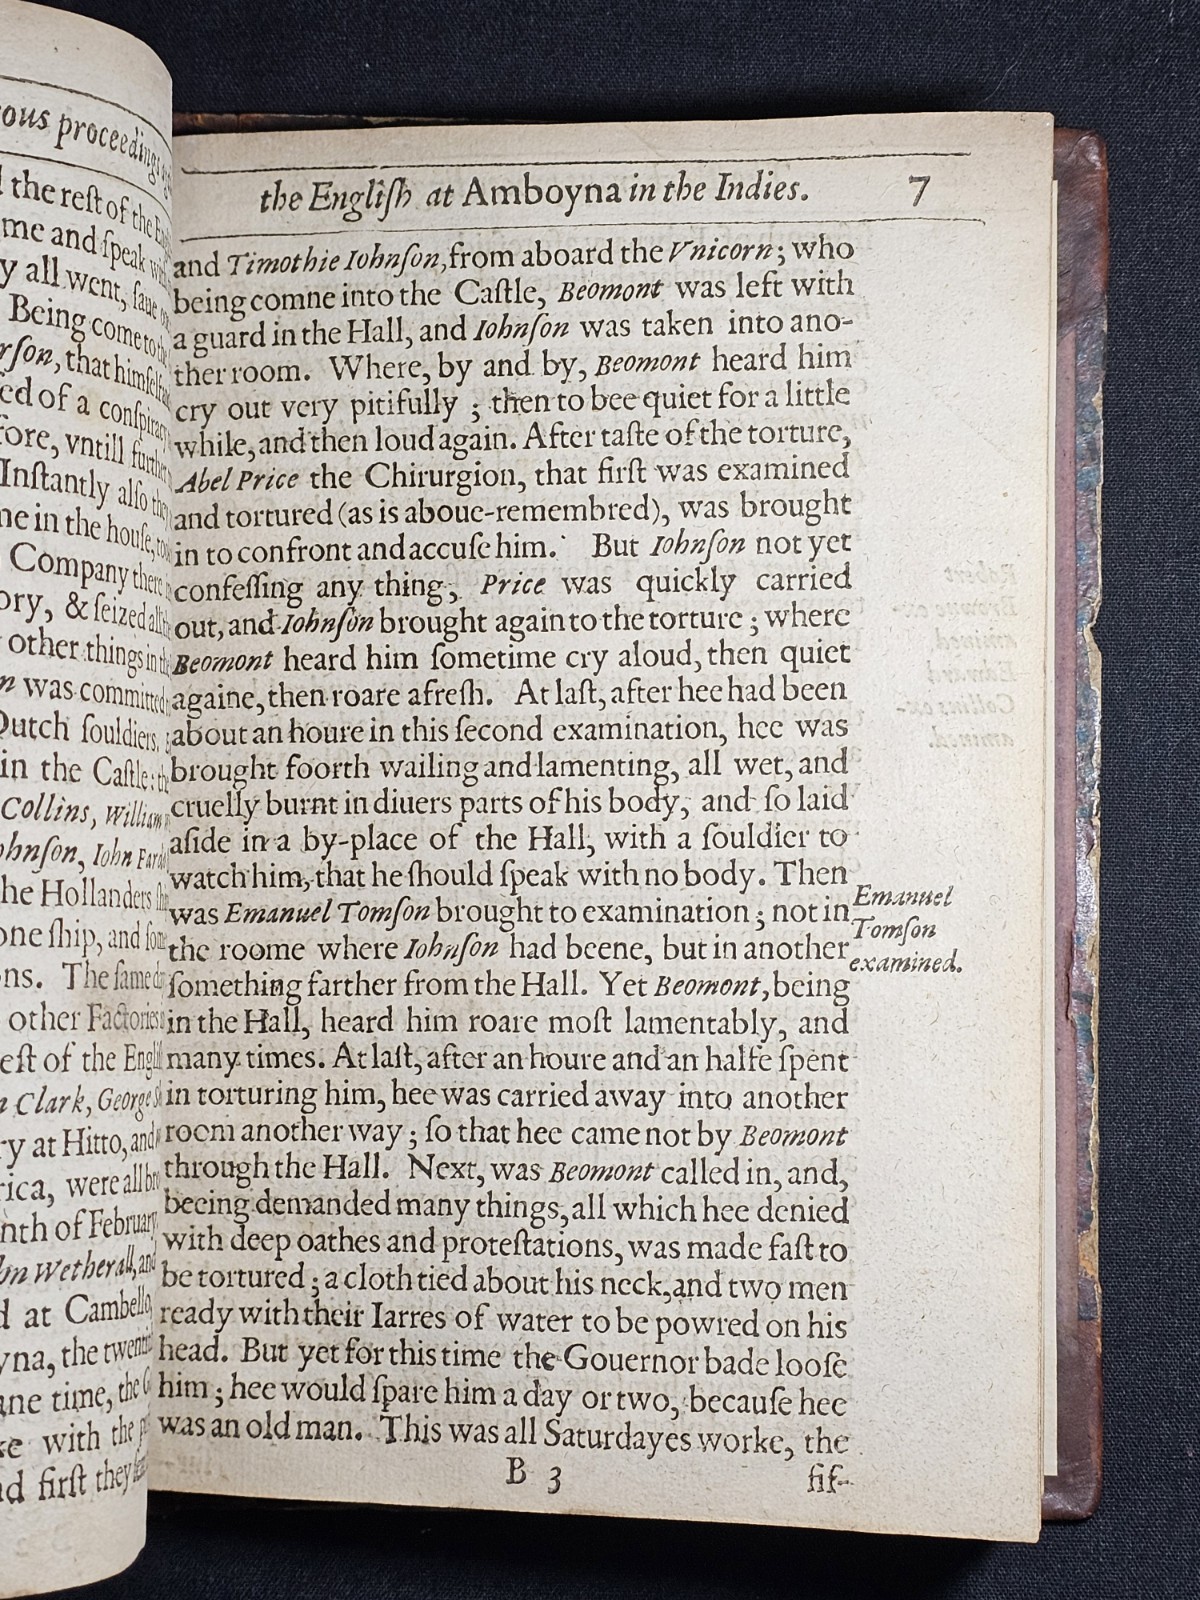 ous proceedings
the rest of the
me and speak
y all went, saue
Being come to the
rson, that himselfe
ed of a conspiracy
fore, vntill further
Instantly also they
me in the house,
Company there
ory, & seized all
other things in the
n was committed
Dutch souldiers,
in the Castle: the
Collins, William
ohnson, Iohn
he Hollanders
one ship, and some
ns. The same
other Factories
est of the
Clark, George
ry at Hitto, and
rica, were all
nth of February
hn Wetherall, and
d at Cambello,
yna, the
ane time, the
ke with the
nd first they
the Engliſh at Amboyna in the Indies. 7
and Timothie Iohnſon, from aboard the Vnicorn; who
being comne into the Caſtle, Beomont was left with
a guard in the Hall, and Iohnſon was taken into ano-
ther room. Where, by and by, Beomont heard him
cry out very pitifully ; then to bee quiet for a little
while, and then loud again. After taſte of the torture,
Abel Price the Chirurgion, that firſt was examined
and tortured (as is aboue-remembred), was brought
in to confront and accuſe him. But Iohnſon not yet
confeſſing any thing, Price was quickly carried
out, and Iohnſon brought again to the torture ; where
Beomont heard him ſometime cry aloud, then quiet
againe, then roare afreſh. At laſt, after hee had been
about an houre in this ſecond examination, hee was
brought foorth wailing and lamenting, all wet, and
cruelly burnt in diuers parts of his body, and ſo laid
aſide in a by-place of the Hall, with a ſouldier to
watch him, that he ſhould ſpeak with no body. Then
was Emanuel Tomſon brought to examination ; not in
the roome where Iohnſon had beene, but in another
ſomething farther from the Hall. Yet Beomont, being
in the Hall, heard him roare moſt lamentably, and
many times. At laſt, after an houre and an halfe ſpent
in torturing him, hee was carried away into another
room another way ; ſo that hee came not by Beomont
through the Hall. Next, was Beomont called in, and,
beeing demanded many things, all which hee denied
with deep oathes and proteſtations, was made faſt to
be tortured ; a cloth tied about his neck, and two men
ready with their Iarres of water to be powred on his
head. But yet for this time the Gouernor bade looſe
him ; hee would ſpare him a day or two, becauſe hee
was an old man. This was all Saturdayes worke, the
B 3 fif-
Emanuel
Tomſon
examined.